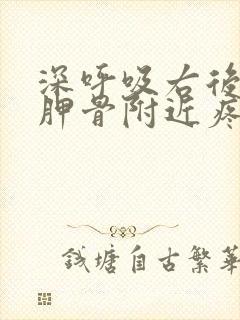 深呼吸右後
胛骨附近疼
钱塘自古繁華